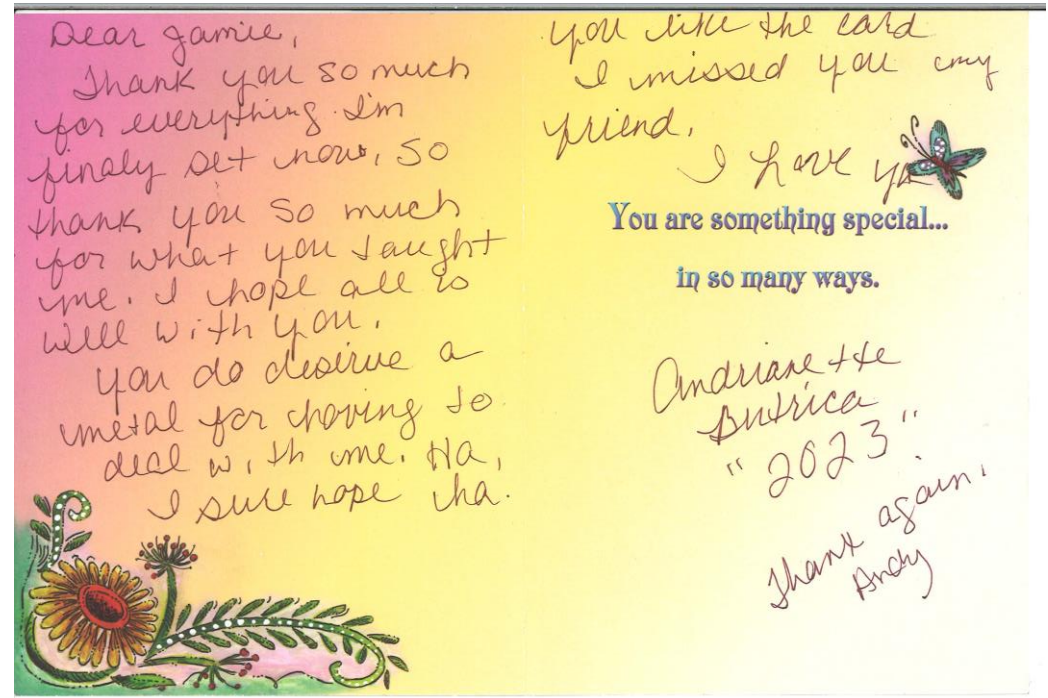 Dear Jamie,
Thank you so much
for everything I'm
finaly set now, so
thank you so much
for what you taught
me. I hope all is
well with you.
You do deserve a
metal for having to
deal with me. Ha,
I sure hope ha.
you like the card
I missed you my
friend.
I love yo
You are something special...
in so many ways.
Andrianette
Butrica
"2023"
Thank again.
Andy